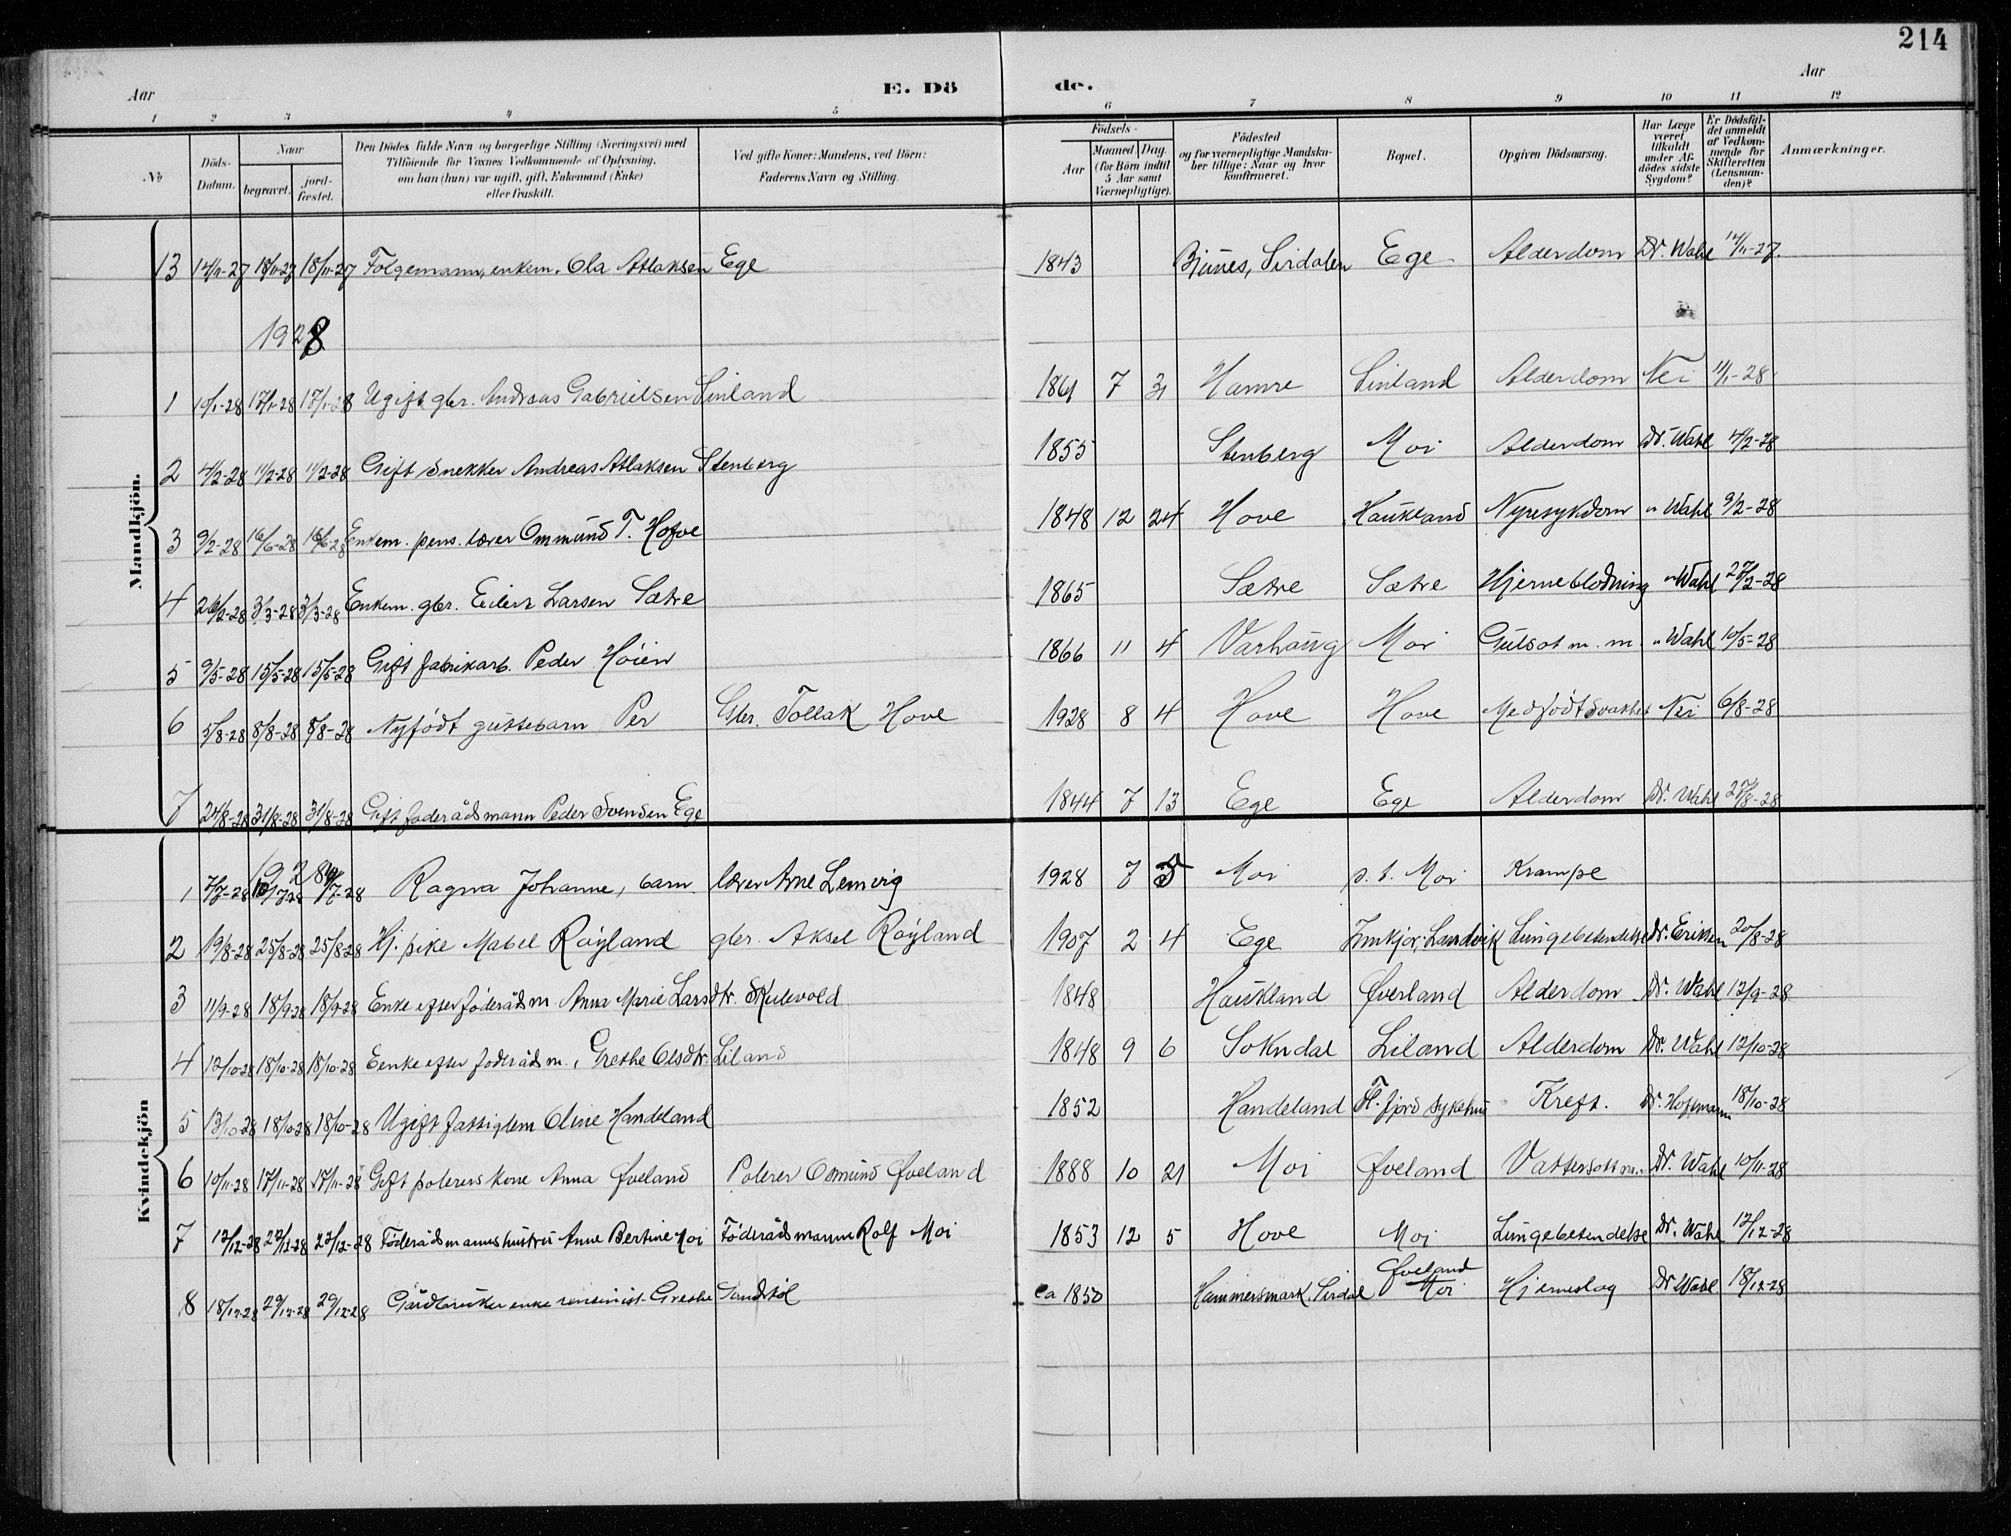 214
Aar E. Dö de. Aar
1 2 3 4 5 6 7 8 9 10 11 12
No Döds-Datum. Naar begravet. jord-fæstet. Den Dödes fulde Navn og borgerlige Stilling (Næringsvei) med Tilföiende for Voxnes Vedkommende af Oplysning, om han (hun) var ugift, gift, Enkemand (Enke) eller fraskilt. Ved gifte Koner: Mandens, ved Börn: Faderens Navn og Stilling. Födsels- Aar Maaned Dag (for Börn indtil 5 Aar samt Værnepligtige). Födested og for værnepligtige Mandska-ber tillige: Naar og hvor konfirmeret. Bopæl. Opgiven Dödsaarsag. Har Læge været tilkaldt under Af-dödes sidste Sygdom? Er Dödsfal-det anmeldt af Vedkom-mende for Skifteretten (Lensman-den)? Anmærkninger.
Mandkjön.
13 14/11-27 18/11-27 18/11-27 Følgemann, enkem. Ola Atlaksen Ege 1843 Sirdalen Ege Alderdom Dr. Wahl 14/11-27.
1928
1 10/1-28 17/1-28 17/1-28 Ugift gbr. Andreas Gabrielsen Sinland 1861 7 31 Hamre Sinland Alderdom Nei 11/1-28
2 4/2-28 11/2-28 11/2-28 Gift snekker Andreas Atlaksen Stenberg 1855 Stenberg Moi Alderdom Dr. Wahl 4/2-28
3 9/2-28 16/6-28 16/6-28 Enkem. pens. lærer Ommund T. Hofve 1848 12 24 Hove Haukland Nyresykdom " Wahl 9/2-28
4 26/2-28 3/3-28 3/3-28 Enkem. gbr. Eilert Larsen Sætre 1865 Sætre Sætre Hjerneblødning " Wahl 27/2-28
5 9/5-28 15/5-28 15/5-28 Gift fabrikarb. Peder Høien 1866 11 4 Varhaug Moi Gulsot m. m. " Wahl 10/5-28
6 5/8-28 8/8-28 8/8-28 Nyfødt guttebarn Per Gbr. Tollak Hove 1928 8 4 Hove Hove Medfødt svakhet Nei 6/8-28
7 24/8-28 31/8-28 31/8-28 Gift føderådsmann Peder Svendsen Ege 1844 7 13 Ege Ege Alderdom Dr. Wahl 27/8-28
Kvindekjön
1928
1 7/7-28 10/7-28 /7-28 Ragna Johanne, barn lærer Arne Lemvig 1928 7 5 Moi p. t. Moi Krampe
2 19/8-28 25/8-28 25/8-28 Hj. pike Mabel Røyland gbr. Aksel Røyland 1907 2 4 Ege Landvik Lungebetendelse Dr. Eriksen 20/8-28
3 11/9-28 18/9-28 18/9-28 Enke efter føderådsm. Anna Marie Larsdtr. Skulevold 1848 Haukland Øverland Alderdom Dr. Wahl 12/9-28
4 12/10-28 18/10-28 18/10-28 Eenke efter føderådsm., Grethe Olsdtr. Liland 1848 9 6 Sokndal Liland Alderdom Dr. Wahl 12/10-28
5 13/10-28 18/10-28 18/10-28 Ugift fattiglem Oline Handeland 1852 Handeland Fl. fjord sykehus Kreft. Dr. Hofmann 18/10-28
6 10/11-28 17/11-28 17/11-28 Gift polererskone Anna Øveland Polerer Osmund Øveland 1888 10 21 Moi Øveland Vattersott m. Dr. Wahl 10/11-28
7 12/12-28 22/12-28 22/12-28 Føderådsmannshustru Anne Bertine Moi Føderådsmann Rolf Moi 1853 12 5 Hove Moi Lungebetendelse Dr. Wahl 12/12-28
8 18/12-28 29/12-28 29/12-28 Gårdbruker enke Grethe Tandstøl ca 1850 Hammersmark, Sirdal Øveland Moi Hjerneslag Dr Wahl 18/12-28